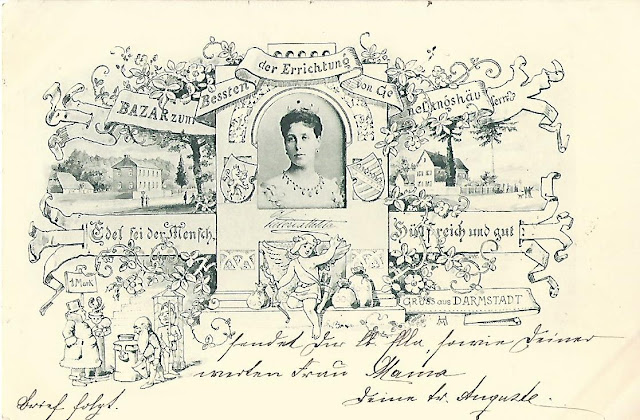 BAZAR zum Bessten der Errichtung von Ge nesungshäu sern
Edel sei der Mensch,
Hülfreich und gut!
1 Mark
GRUSS aus DARMSTADT
sendet der lb. Ella, sowie Deiner
werten Frau Mama
Deine tr. Auguste.
Brief folgt.